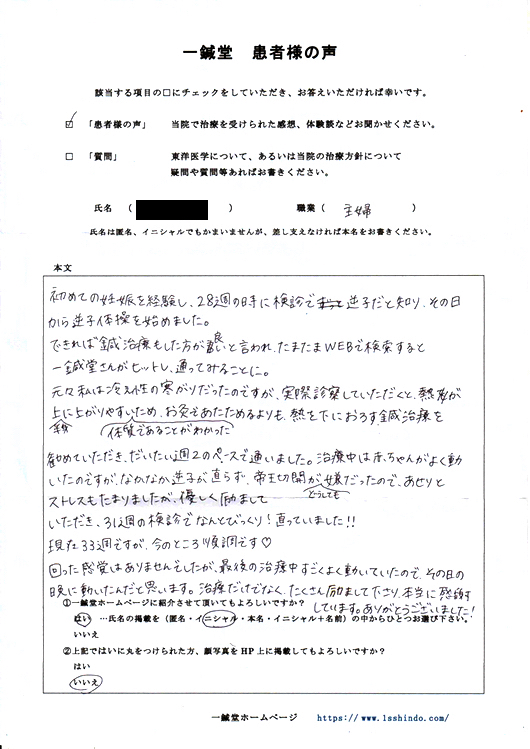 一鍼堂 患者様の声
該当する項目の□にチェックをしていただき、お答えいただければ幸いです。
☑ 「患者様の声」 当院で治療を受けられた感想、体験談などお聞かせください。
□ 「質問」 東洋医学について、あるいは当院の治療方針について
疑問や質問等あればお書きください。
氏名 ( ) 職業 ( 主婦 )
氏名は匿名、イニシャルでもかまいませんが、差し支えなければ本名をお書きください。
本文
初めての妊娠を経験し、28週の時に検診で逆子だと知り、その日
から逆子体操を始めました。
できれば鍼治療もした方が良いと言われ、たまたまWEBで検索すると
一鍼堂さんがヒットし、通ってみることに。
元々私は冷え性の寒がりだったのですが、実際診察していただくと、熱が
上に上がりやすいため、お灸であたためるよりも、熱を下におろす鍼治療を
体質であることがわかった
勧めていただき、だいたい週2のペースで通いました。治療中は赤ちゃんがよく動
いたのですが、なかなか逆子が直らず、帝王切開が嫌だったので、あせりと
どうしても
ストレスもたまりましたが、優しく励まして
いただき、31週の検診でなんとびっくり!直っていました!!
現在33週ですが、今のところ順調です♡
回った感覚はありませんでしたが、最後の治療中すごくよく動いていたので、その日の
晩に動いたんだと思います。治療だけでなく、たくさん励まして下さり、本当に感謝
しています。ありがとうございました!
①一鍼堂ホームページに紹介させて頂いてもよろしいですか?
はい …氏名の掲載を(匿名・イニシャル・本名・イニシャル+名前)の中からひとつお選び下さい。
いいえ
②上記ではいに丸をつけられた方、顔写真をHP上に掲載してもよろしいですか?
はい
いいえ
一鍼堂ホームページ https://www.1sshindo.com/